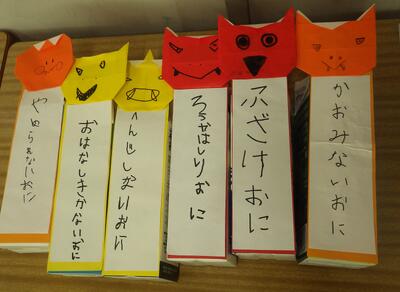 かおみないおに
ふざけおに
ろうかはしりおに
へんじしないおに
おはなしきかないおに
やめられないおに